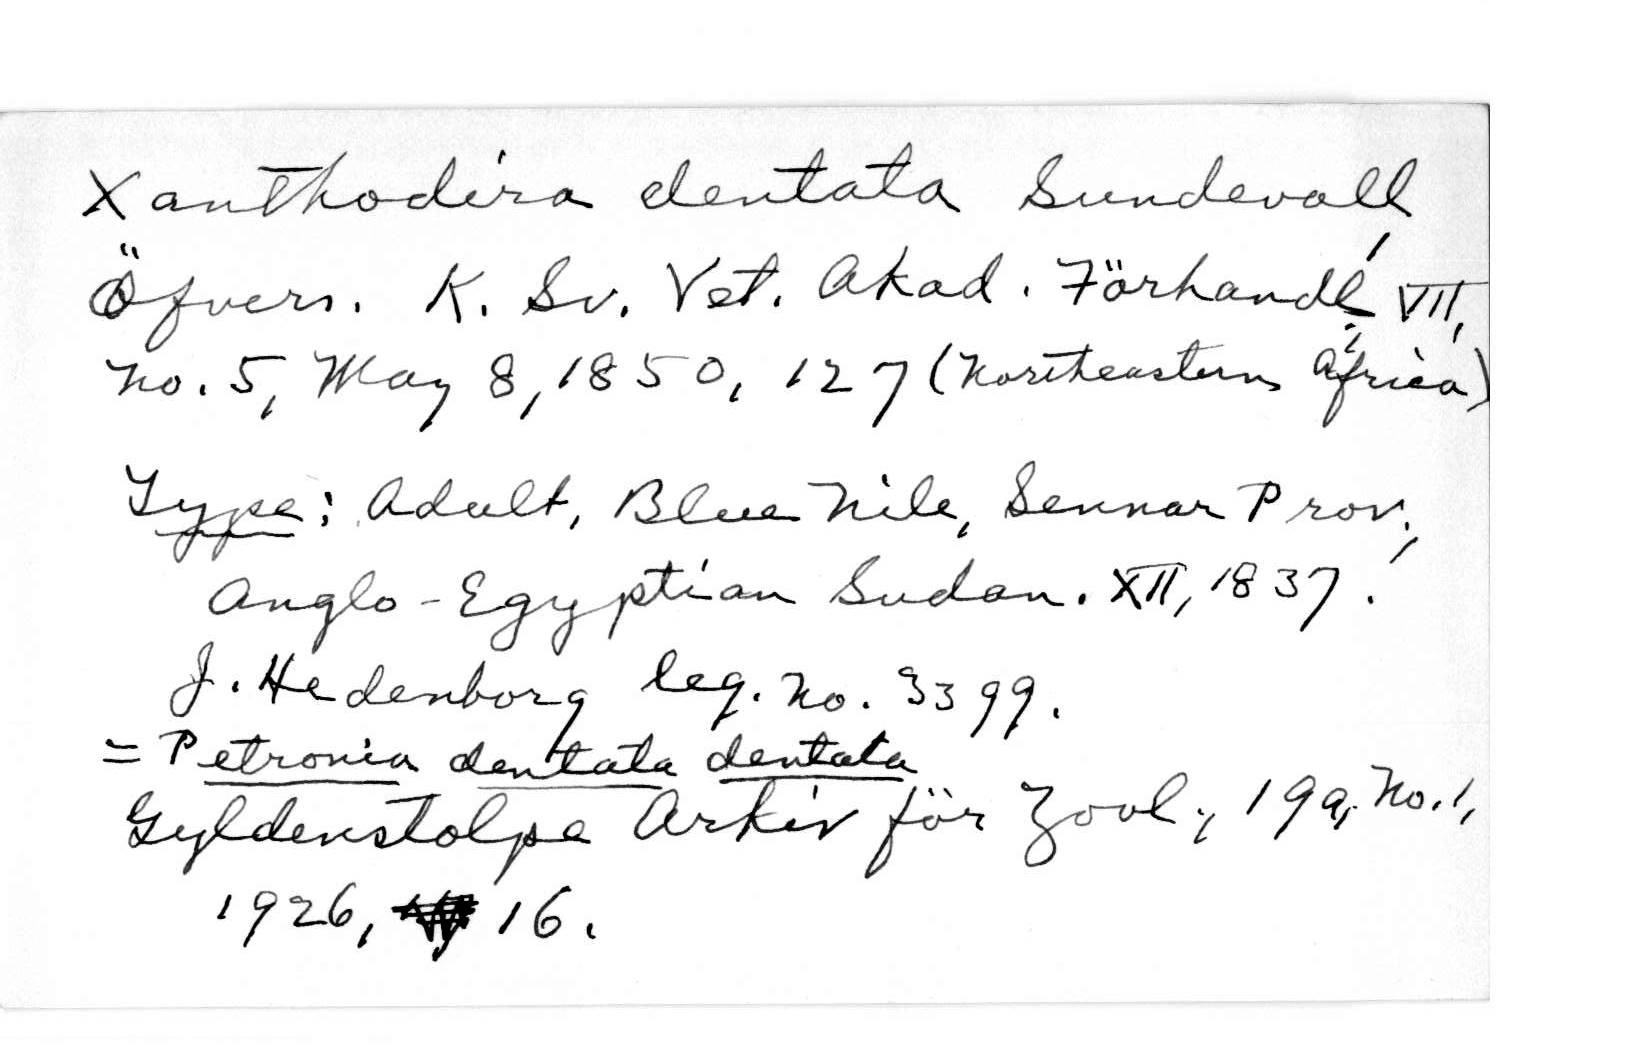 Xanthodira dentata Sundevall,
Öfvers. K. Sv. Vet. Akad. Förhandl., VII,
no. 5, May 8, 1850, 127 (Northeastern Africa)
Type: Adult, Blue Nile, Sennar Prov.,
Anglo-Egyptian Sudan. XII, 1837.
J. Hedenborg leg. No. 3399.
= Petronia dentata dentata
Gyldenstolpe Arkiv för Zool., 19a, No. 1,
1926, 16.